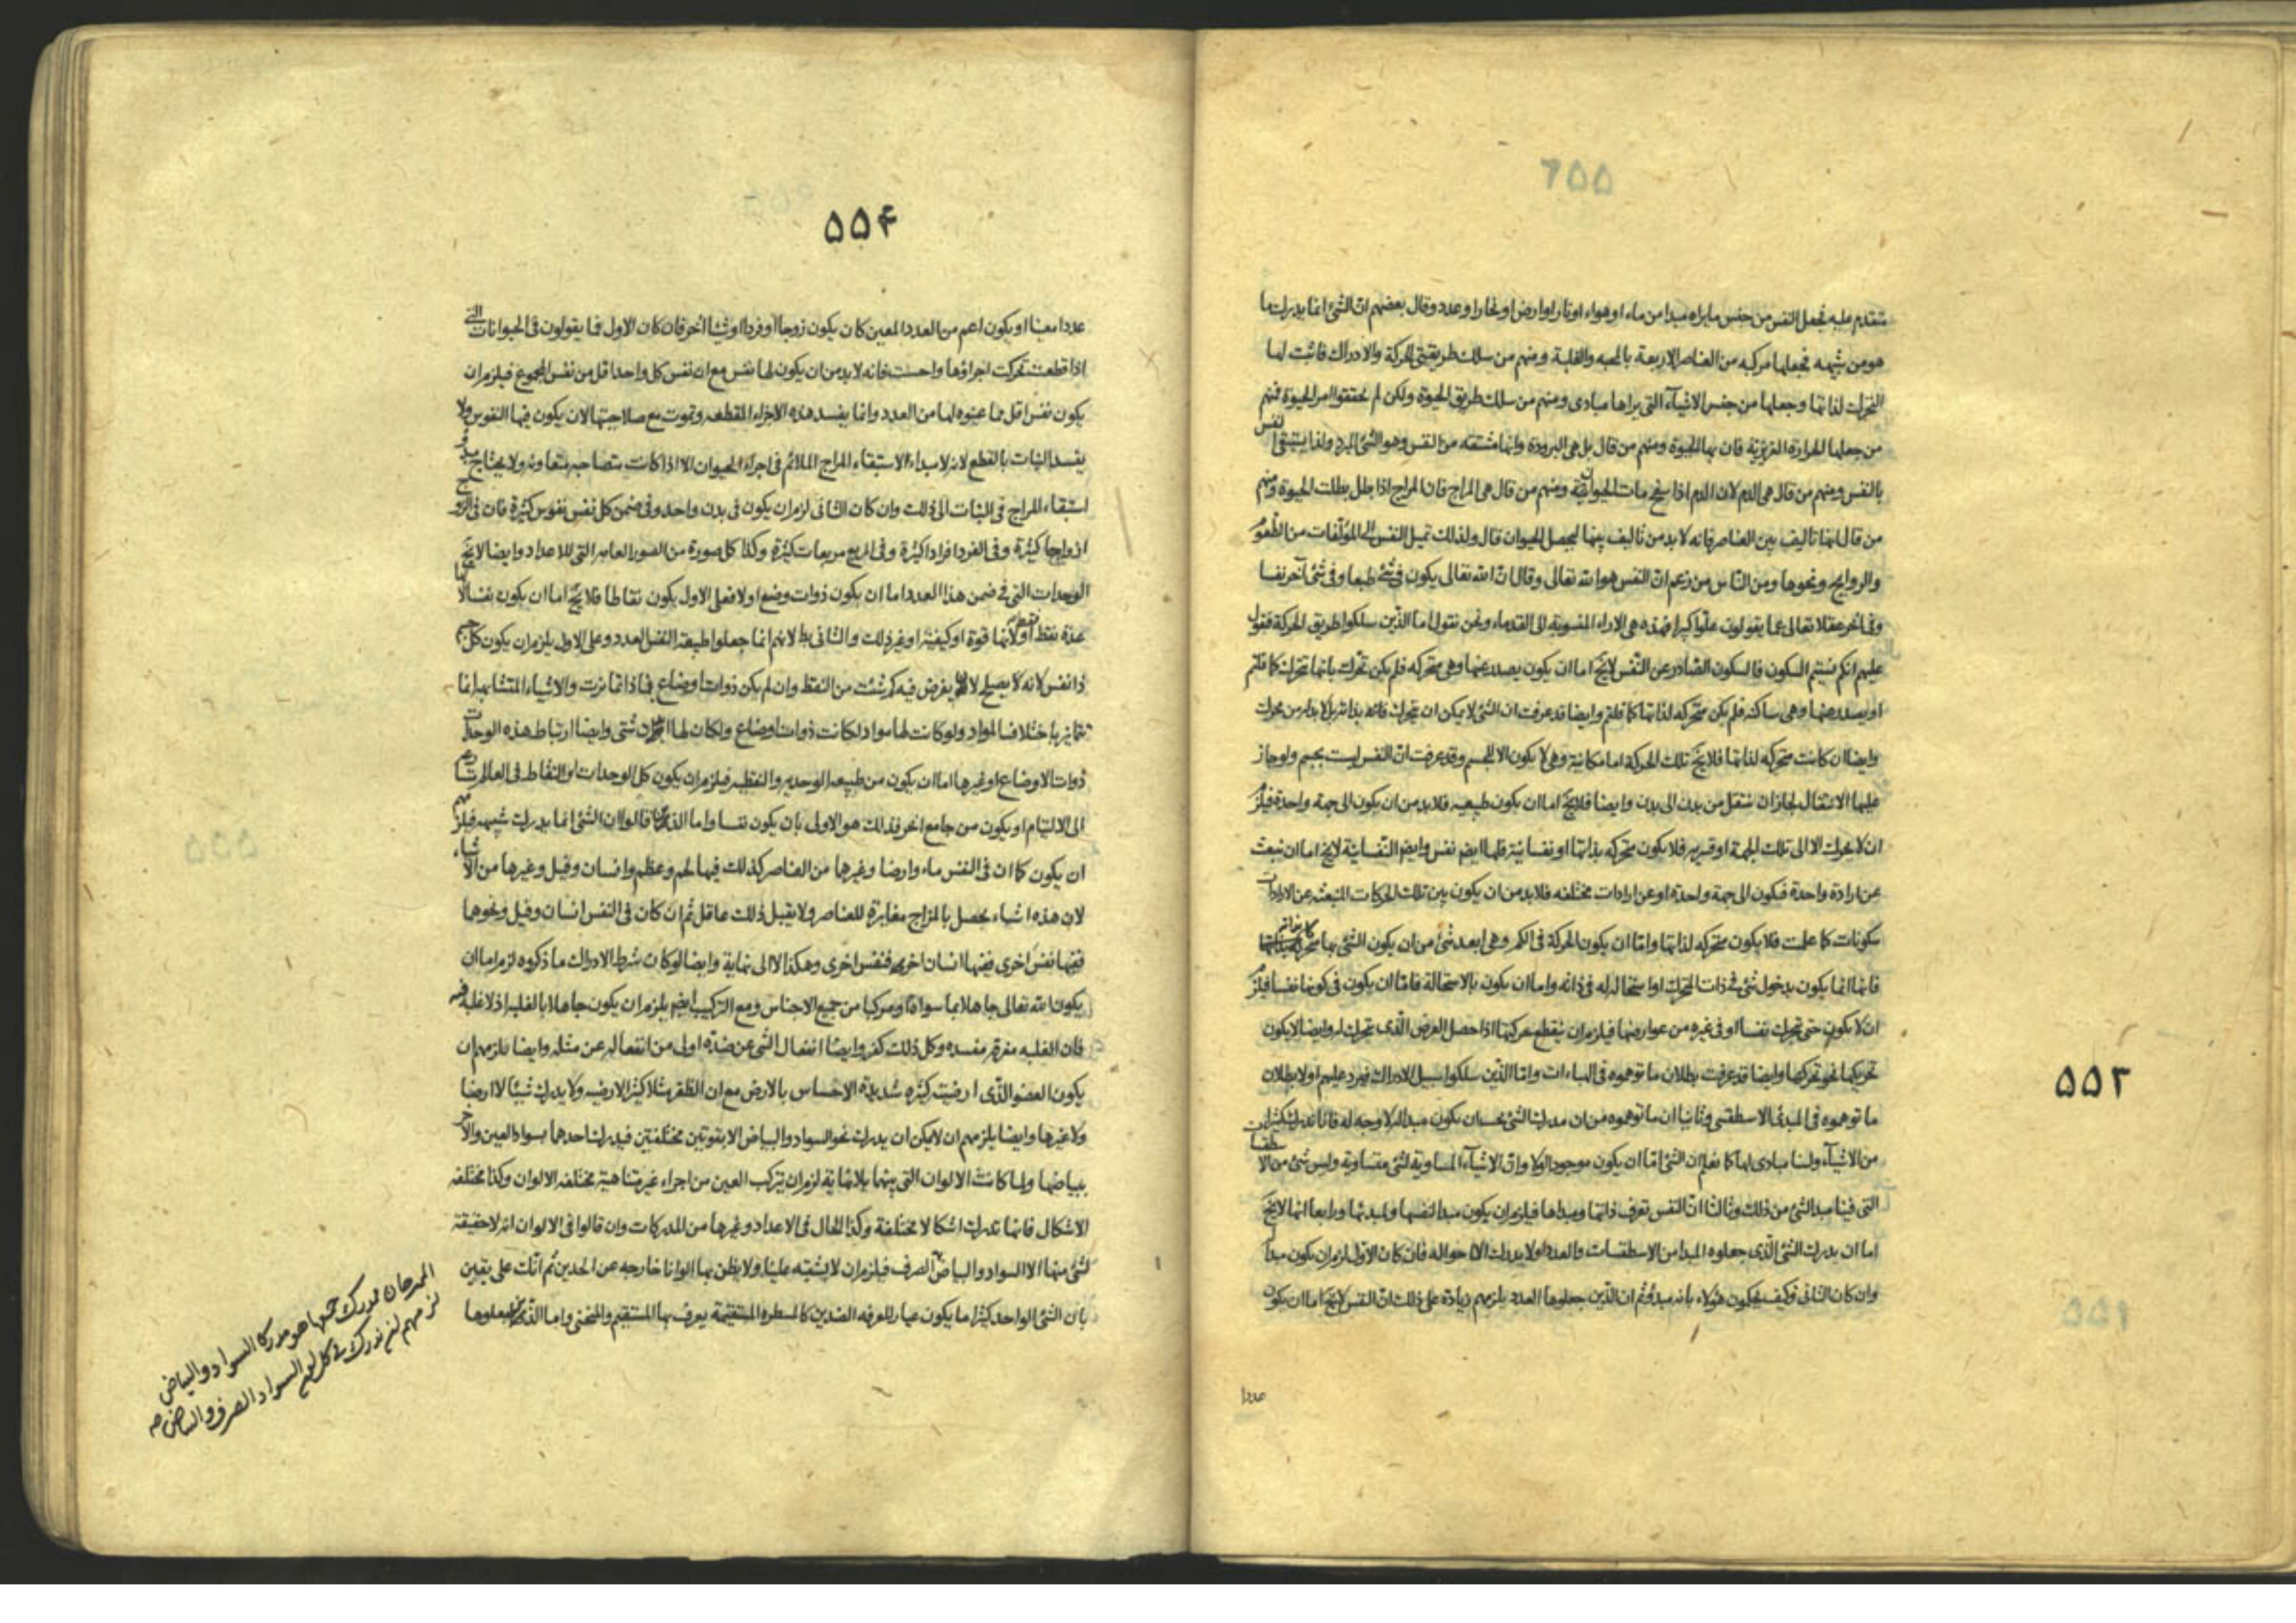 متقدم عليه فجعل النفس من جنس ما يراه مبدا من ماء او هواء او نار او ارض او بخار او عدد وقال بعضهم ان الشئ انما يدرك ما
هو من شبهه فجعلها مركبه من العناصر الاربعة بالمحبه والغلبة ومنهم من سلك طريقتى الحركة والادراك فاثبت لها
التحرك لذاتها وجعلها من جنس الاشيآء التى يراها مبادى ومنهم من سلك طريق الحيوة ولكن لم يحققوا امر الحيوة فمنهم
من جعلها الحرارة الغريزية فان بها الحيوة ومنهم من قال بل هى البرودة وانها مشتقه من النفس وهو الشئ المبرد ولذا يستبقى النفس
بالنفس ومنهم من قال هى الدم لان الدم اذا سفح مات الحيوان ومنهم من قال هى المزاج فان المزاج اذا بطل بطلت الحيوة ومنهم
من قال انها تاليف بين العناصر فانه لا بد من تاليف بينها ليحصل الحيوان قال ولذلك تميل النفس الى المؤلفات من الطعوم
والروايح ونحوها ومن الناس من زعم ان النفس هو الله تعالى وقال ان الله تعالى يكون فى شئ طبعا وفى شئ آخر نفسا
وفى آخر عقلا تعالى عما يقولون علوا كبيرا فهذه هى الاراء المنسوبة الى القدماء ونحن نقول اما الذين سلكوا طريق الحركة فنقول
عليهم انكم نسيتم السكون فالسكون الصادر عن النفس لايخ اما ان يكون يصدر عنها وهى متحركه فلم يكن تحرك بانها تتحرك كما قلتم
او يصدر عنها وهى ساكنه فلم يكن متحركه لذاتها كما قلتم وايضا قد عرفت ان الشئ لا يمكن ان يتحرك بذاته بل لا بد له من محرك
وايضا ان كانت متحركه لذاتها فلايخ تلك الحركة اما مكانية وهى لا يكون الا للجسم وقد عرفت ان النفس ليست بجسم ولو جاز
عليها الانتقال لجاز ان تنتقل من بدن الى بدن وايضا فلايخ اما ان يكون طبيعيه فلا بد من ان يكون الى جهة واحدة فيلزم
ان لا يحرك الا الى تلك الجهة او قسريه فلا يكون متحركه بذاتها او نفسانية فلها ايضا نفس وايضا النفسانية لايخ اما ان تنبعث
عن ارادة واحدة فيكون الى جهة واحدة او عن ارادات مختلفه فلا بد من ان يكون بين تلك الحركات المنبعثه عن الارادات
سكونات كما علمت فلا يكون متحركه لذاتها واما ان يكون الحركة فى الكم وهى ابعد شئ من ان يكون الشئ بها متحركا بذاته
فانها انما يكون بدخول شئ فى ذات المتحرك او استحالة له فى ذاته واما ان يكون بالاستحالة فاما ان يكون فى كونها نفسا فيلزم
ان لا يكون حتى تحرك نفسا او فى غيره من عوارضها فيلزم ان ينقطع حركتها اذا حصل العرض الذى تحرك له وايضا لا يكون
تحريكها نحو تحركها وايضا قد عرفت بطلان ما توهموه فى المباءات واما الذين سلكوا سبيل الادراك فيرد عليهم اولا بطلان
ما توهموه فى المبدئ الاسطقسى وثانيا ان ما توهموه من ان مدرك الشئ يجب ان يكون مبدا له لا وجه له فانا ندرك كثيرا
من الاشيآء ولسنا مبادى لها كما نعلم ان الشئ اما ان يكون موجودا اولا وان الاشيآء المساوية لشئ متساوية وليس شئ من الا
التى فينا مبدا لشئ من ذلك وثالثا ان النفس تعرف ذاتها ومبداها فيلزم ان يكون مبدا لنفسها ولمبدئها ورابعا انها لايخ
اما ان يدرك الشئ الذى جعلوه المبدا من الاسطقسات والعدد او لا يدرك الا احواله فان كان الاول لزم ان يكون مبدا
وان كان الثانى فكيف يحكون هؤلاء بانه مبدؤ ثم ان الذين جعلوها العدد يلزمهم زيادة على ذلك ان النفس لايخ اما ان يكون
عددا
۵۵۲
۵۵۴
عددا معينا او يكون اعم من العدد المعين كان يكون زوجا او فردا او شيئا آخر فان كان الاول فما يقولون فى الحيوانات التى
اذا قطعت تحركت اجزاؤها واحست فانه لا بد من ان يكون لها نفس مع ان نفس كل واحد اقل من نفس المجموع فيلزم ان
يكون نفس اقل مما عينوه لها من العدد وانما يفسد هذه الاجزاء المقطعه وتموت مع صلاحيتها لان يكون فيها النفوس ولا
يفسد النبات بالقطع لانه لا مبداء لاستبقاء المزاج الملائم فى اجزآء الحيوان الا اذا كانت متصاحبه متعاونه ولا يحتاج
استبقاء المزاج فى النبات الى ذلك وان كان الثانى لزم ان يكون فى بدن واحد وفى ضمن كل نفس نفوس كثيرة فان فى الزوج
ازواجا كثيرة وفى الفرد افرادا كثيرة وفى المربع مربعات كثيرة وكذا كل صورة من الصور العامه التى للاعداد وايضا لايخ
الوحدات التى فى ضمن هذا العدد اما ان يكون ذوات وضع او لا فعلى الاول يكون نقاطا فلايخ اما ان يكون نفسا لانها
عدة نقط او لانها قوة او كيفية او غير ذلك والثانى بط لانهم انما جعلوا طبيعة النفس العدد وعلى الاول يلزم ان يكون كل جسم
ذا نفس لانه يفرض فيه كم شئت من النقط وان لم يكن ذوات اوضاع فبماذا تمايزت والاشياء المتشابهه انما
تتمايز باختلاف المواد ولو كانت لها مواد لكانت ذوات اوضاع ولكان لها ابدان شتى وايضا ارتباط هذه الوحدات
ذوات الاوضاع او غيرها اما ان يكون من طبيعه الوحديه والنقطيه فيلزم ان يكون كل الوحدات او النقاط فى العالم
الى الالتيام او يكون من جامع آخر فذلك هو الاولى بان يكون نفسا واما الذين قالوا ان الشئ انما يدرك شبهه فيلزمهم
ان يكون كما ان فى النفس ماء وارضا وغيرهما من العناصر كذلك فيها لحم وعظم وانسان وفيل وغيرها من الاشياء
لان هذه اشياء يحصل بالمزاج مغايرة للعناصر ولا يقبل ذلك عاقل ثم ان كان فى النفس انسان وفيل ونحوها
ففيها نفس اخرى ففيها انسان اخر فنفس اخرى وهكذا لا الى نهاية وايضا لو كان شرط الادراك ما ذكروه لزم اما ان
يكون الله تعالى جاهلا بما سواه او مركبا من جميع الاجناس ومع التركيب ايضا يلزم ان يكون جاهلا بالغلبه اذ لا غلبه فيه
فان الغلبه مفرقه مفسده وكل ذلك كفر وايضا انفعال الشئ عن ضده اولى من انفعاله عن مثله وايضا يلزمهم ان
يكون العضو الذى ارضيته كثيره شديدة الاحساس بالارض مع ان الظفر مثلا كثير الارضيه ولا يدرك شيئا لا ارضا
ولا غيرها وايضا يلزمهم ان لا يمكن ان يدرك نحو السواد والبياض الا بقوتين مختلفتين فيدرك احدهما بسواد العين والآخر
ببياضها ولما كانت الالوان التى بينهما بلا نهاية لزم ان يتركب العين من اجزاء غير متناهية مختلفه الالوان وكذا مختلفه
الاشكال فانها تدرك اشكالا مختلفة وكذا الحال فى الاعداد وغيرها من المدركات وان قالوا فى الالوان انه لا حقيقه
لشئ منها الا السواد والبياض الصرف فيلزم ان لا يشتبه علينا ولا يظن بها الوانا خارجه عن الحدين ثم انك على يقين
بان الشئ الواحد كثيرا ما يكون عيارا لمعرفه الضدين كالمسطره المستقيمة يعرف بها المستقيم والمنحنى واما الذين جعلوها
السواد والبياض
لزمهم ان يدرك فى كل لون السواد الصرف والبياض